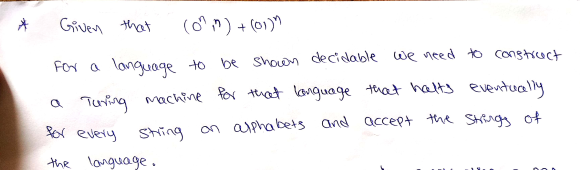 * Given that (0ⁿ,ⁿ) + (01)ⁿ
For a language to be shown decidable we need to construct
a Turing machine for that language that halts eventually
for every string on alphabets and accept the strings of
the language.